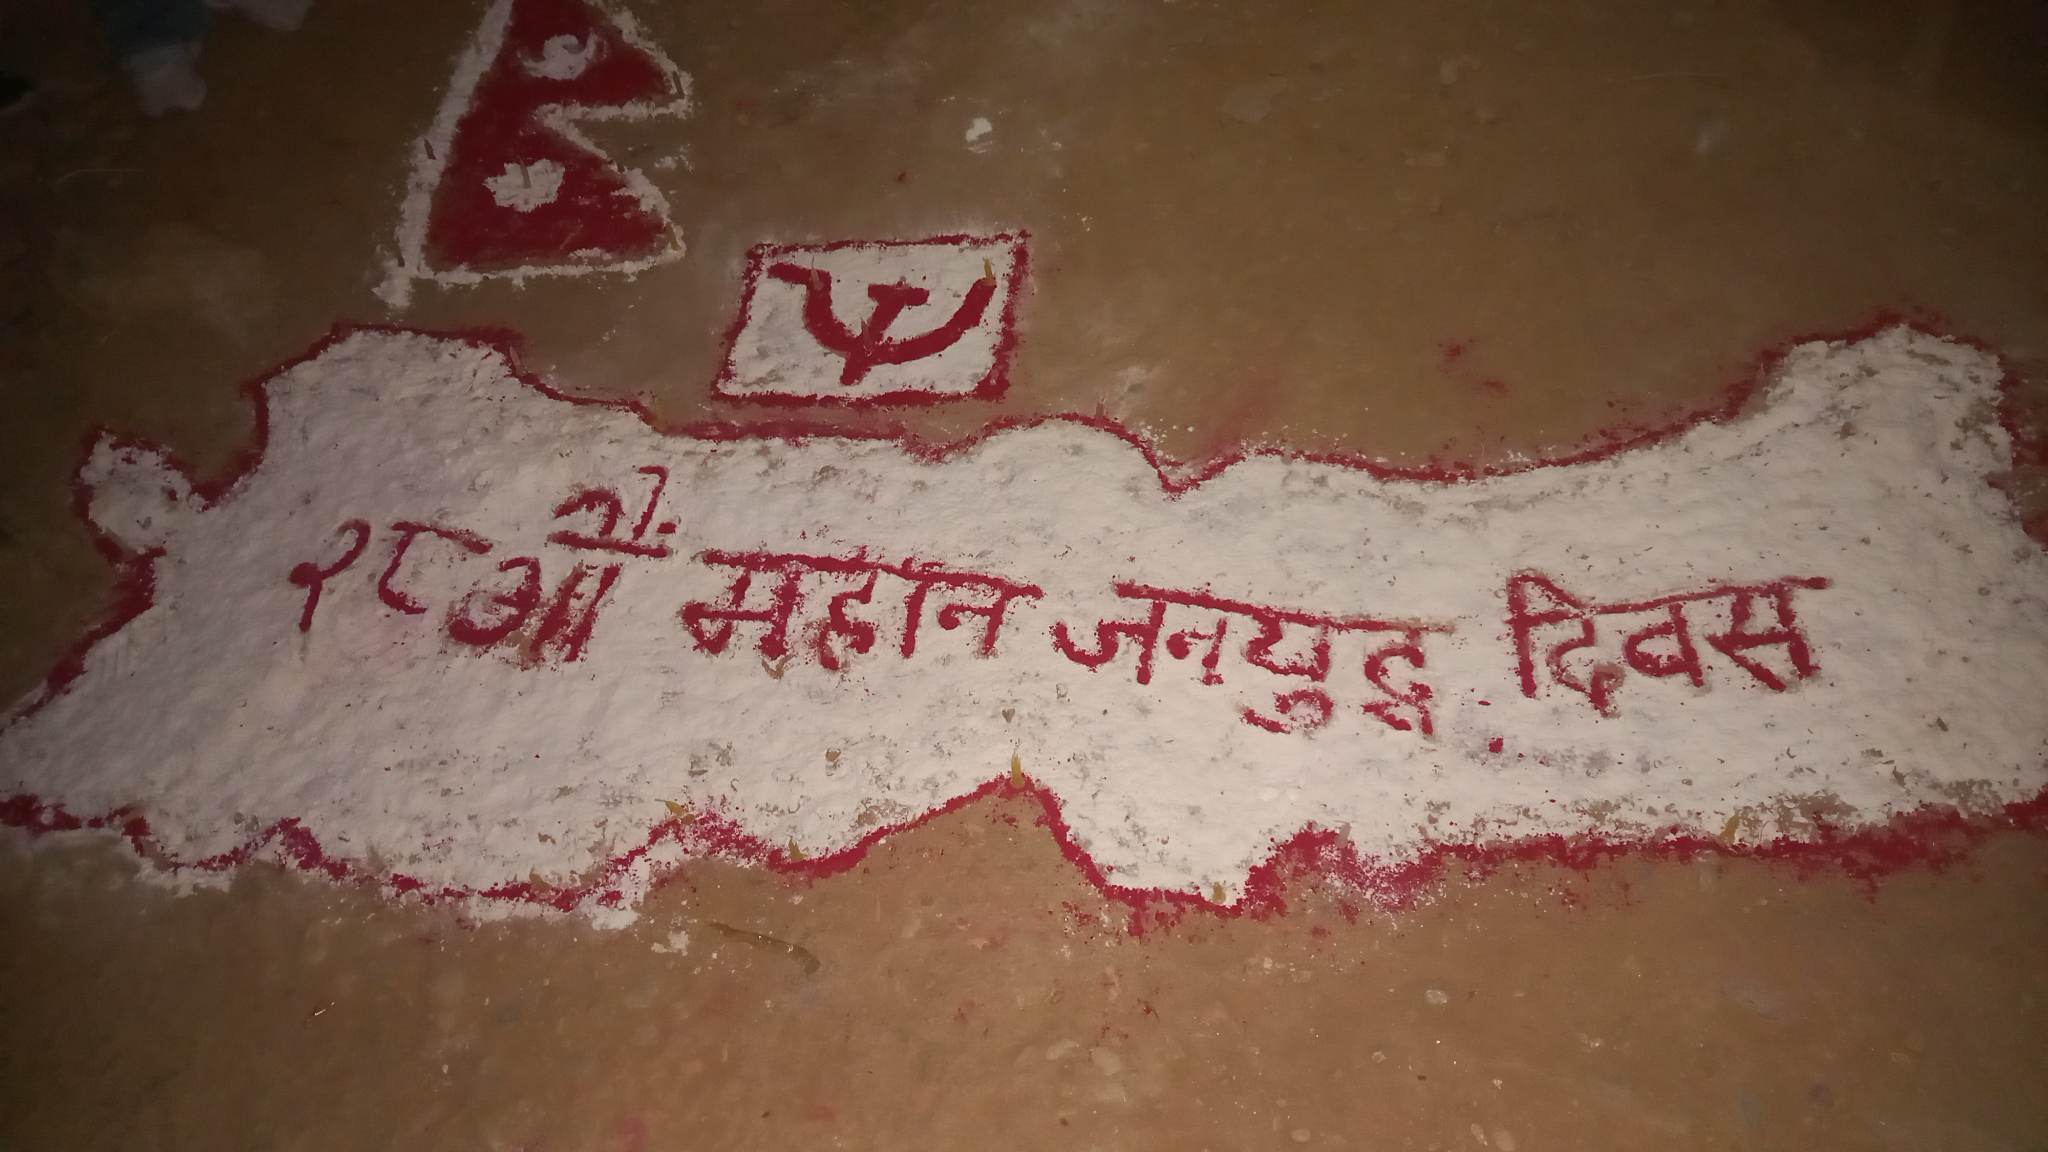 २८औं महान जनयुद्ध दिवस